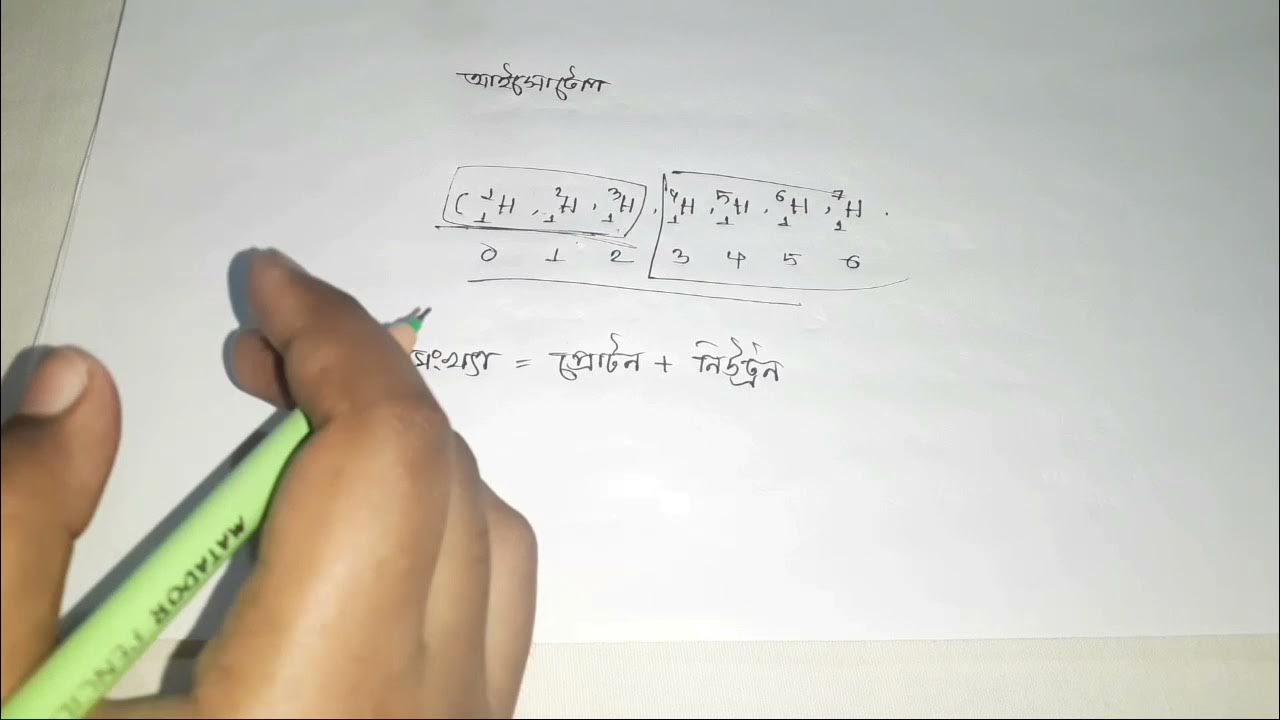 আইসোটোপ
( ¹₁H , ²₁H , ³₁H , ⁴₁H , ⁵₁H , ⁶₁H , ⁷₁H .
0 1 2 3 4 5 6
সংখ্যা = প্রোটন + নিউট্রন
MATADOR PENCIL